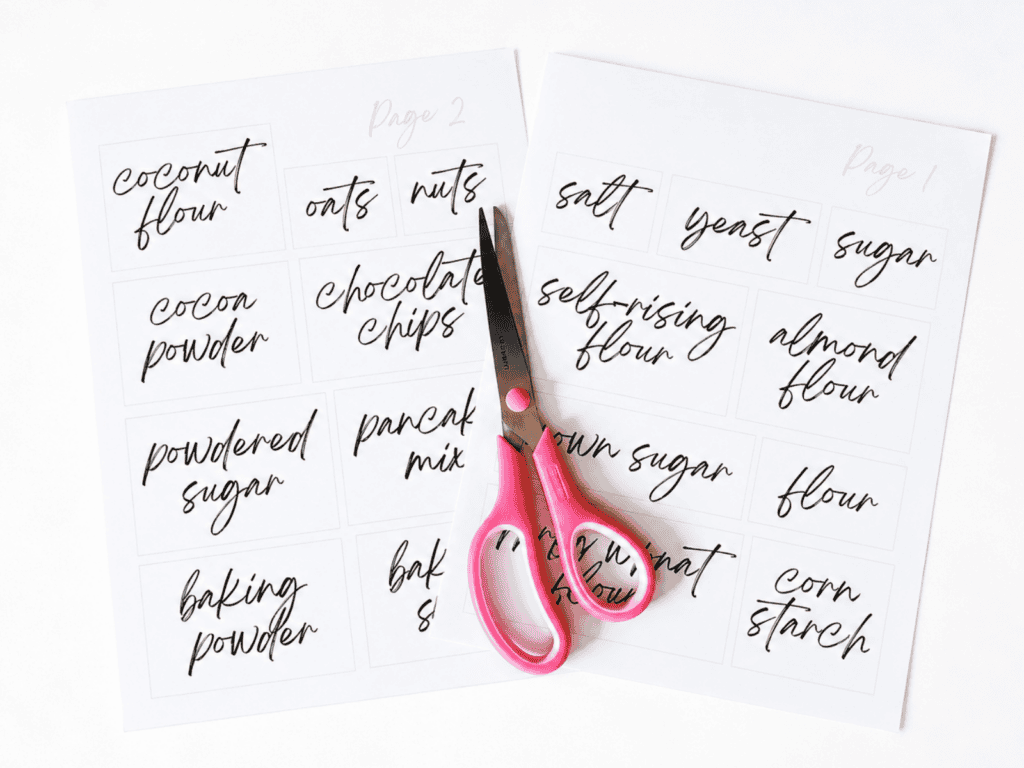 Page 2
coconut
flour
oats
nuts
cocoa
powder
chocolate
chips
powdered
sugar
pancak
mix
baking
powder
bak
Page 1
salt
yeast
sugar
self-rising
flour
almond
flour
own sugar
flour
corn
starch